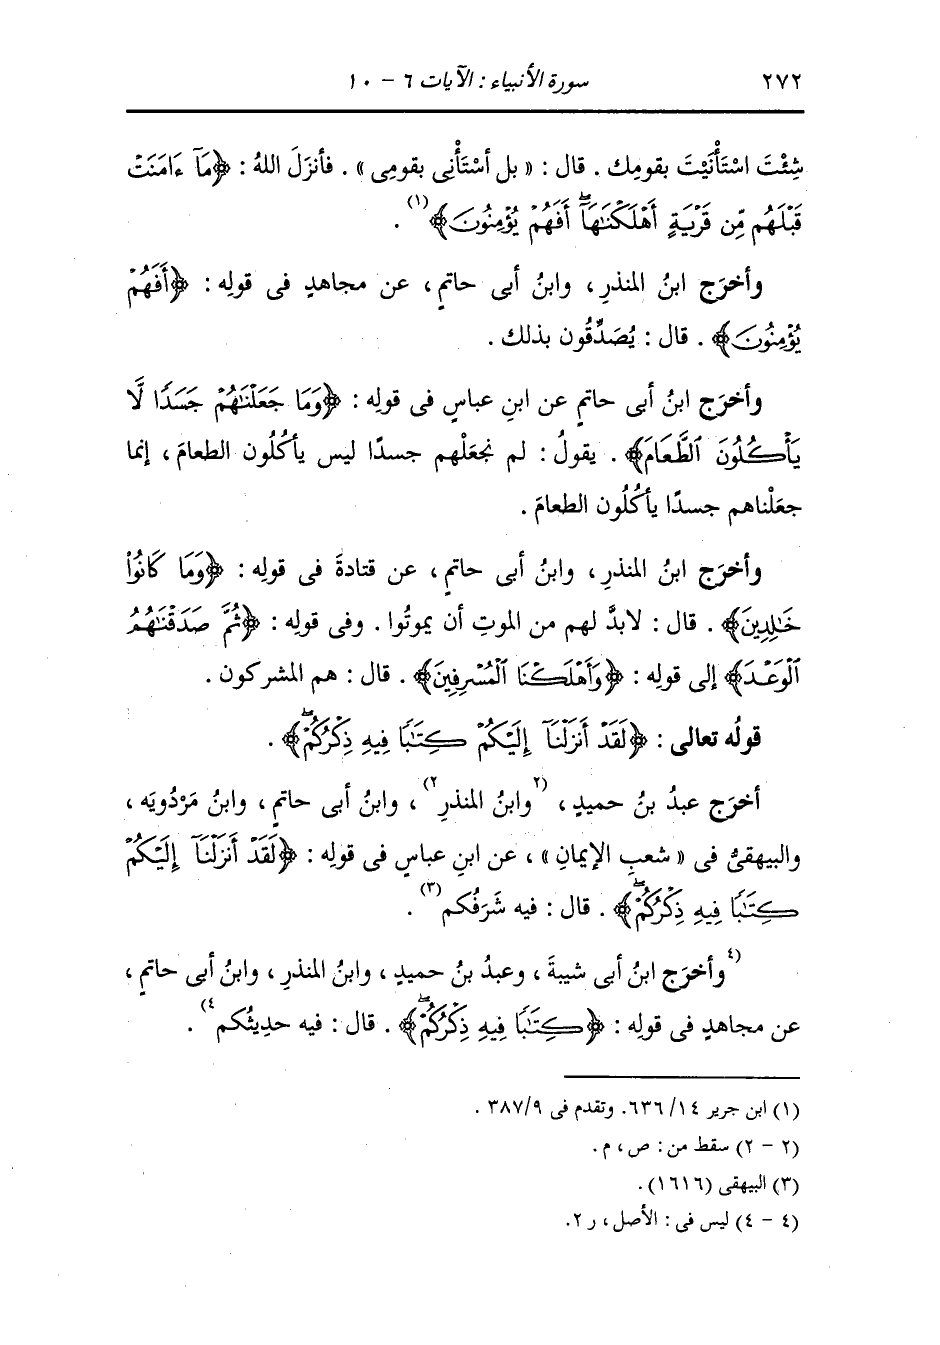 ٢٧٢ سورة الأنبياء : الآيات ٦ - ١٠
شِئْتَ اسْتَأْنَيْتَ بقومِك . قال : « بل أَسْتَأْنِى بقومِى » . فأنزَلَ اللهُ : ﴿مَآ ءَامَنَتْ
قَبْلَهُم مِّن قَرْيَةٍ أَهْلَكْنَٰهَآ ۖ أَفَهُمْ يُؤْمِنُونَ﴾(١) .
وأخرَج ابنُ المنذرِ ، وابنُ أبى حاتمٍ ، عن مجاهدٍ فى قولِه : ﴿أَفَهُمْ
يُؤْمِنُونَ﴾ . قال : يُصَدِّقُون بذلك .
وأخرَج ابنُ أبى حاتمٍ عن ابنِ عباسٍ فى قولِه : ﴿وَمَا جَعَلْنَٰهُمْ جَسَدًا لَّا
يَأْكُلُونَ ٱلطَّعَامَ﴾ . يقولُ : لم نجعَلْهم جسدًا ليس يأكُلُون الطعامَ ، إنما
جعَلْناهم جسدًا يأكُلُون الطعامَ .
وأخرَج ابنُ المنذرِ ، وابنُ أبى حاتمٍ ، عن قتادةَ فى قولِه : ﴿وَمَا كَانُوا۟
خَٰلِدِينَ﴾ . قال : لابدَّ لهم من الموتِ أن يموتُوا . وفى قولِه : ﴿ثُمَّ صَدَقْنَٰهُمُ
ٱلْوَعْدَ﴾ إلى قولِه : ﴿وَأَهْلَكْنَا ٱلْمُسْرِفِينَ﴾ . قال : هم المشركون .
قولُه تعالى : ﴿لَقَدْ أَنزَلْنَآ إِلَيْكُمْ كِتَٰبًا فِيهِ ذِكْرُكُمْ ۖ﴾ .
أخرَج عبدُ بنُ حميدٍ ، (٢وابنُ المنذرِ٢) ، وابنُ أبى حاتمٍ ، وابنُ مَرْدُويَه ،
والبيهقىُّ فى « شعبِ الإيمانِ » ، عن ابنِ عباسٍ فى قولِه : ﴿لَقَدْ أَنزَلْنَآ إِلَيْكُمْ
كِتَٰبًا فِيهِ ذِكْرُكُمْ ۖ﴾ . قال : فيه شَرَفُكم(٣) .
(٤وأخرَج ابنُ أبى شيبةَ ، وعبدُ بنُ حميدٍ ، وابنُ المنذرِ ، وابنُ أبى حاتمٍ ،
عن مجاهدٍ فى قولِه : ﴿كِتَٰبًا فِيهِ ذِكْرُكُمْ ۖ﴾ . قال : فيه حديثُكم٤) .
(١) ابن جرير ١٤/ ٦٣٦. وتقدم فى ٩/ ٣٨٧ .
(٢ - ٢) سقط من : ص ، م .
(٣) البيهقى (١٦١٦) .
(٤ - ٤) ليس فى : الأصل ، ر ٢.